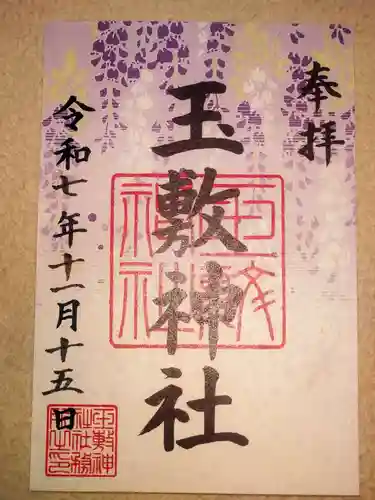 奉拝
玉敷神社
令和七年十一月十五日
玉敷神社
玉敷神
社社務
所之印